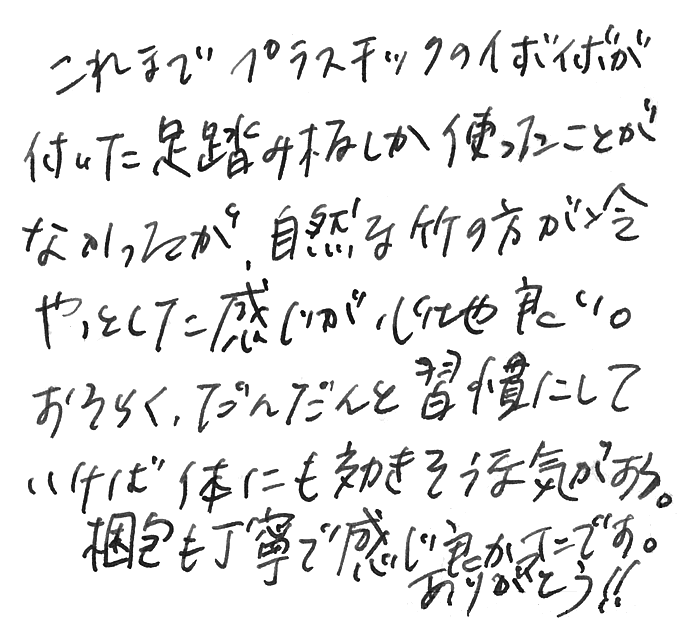 これまでプラスチックのイボイボが
付いた足踏み板しか使ったことが
なかったが、自然な竹の方が冷
やっとした感じが心地良い。
おそらく、だんだんと習慣にして
いけば体にも効きそうな気がある。
梱包も丁寧で感じ良かったです。
ありがとう!!